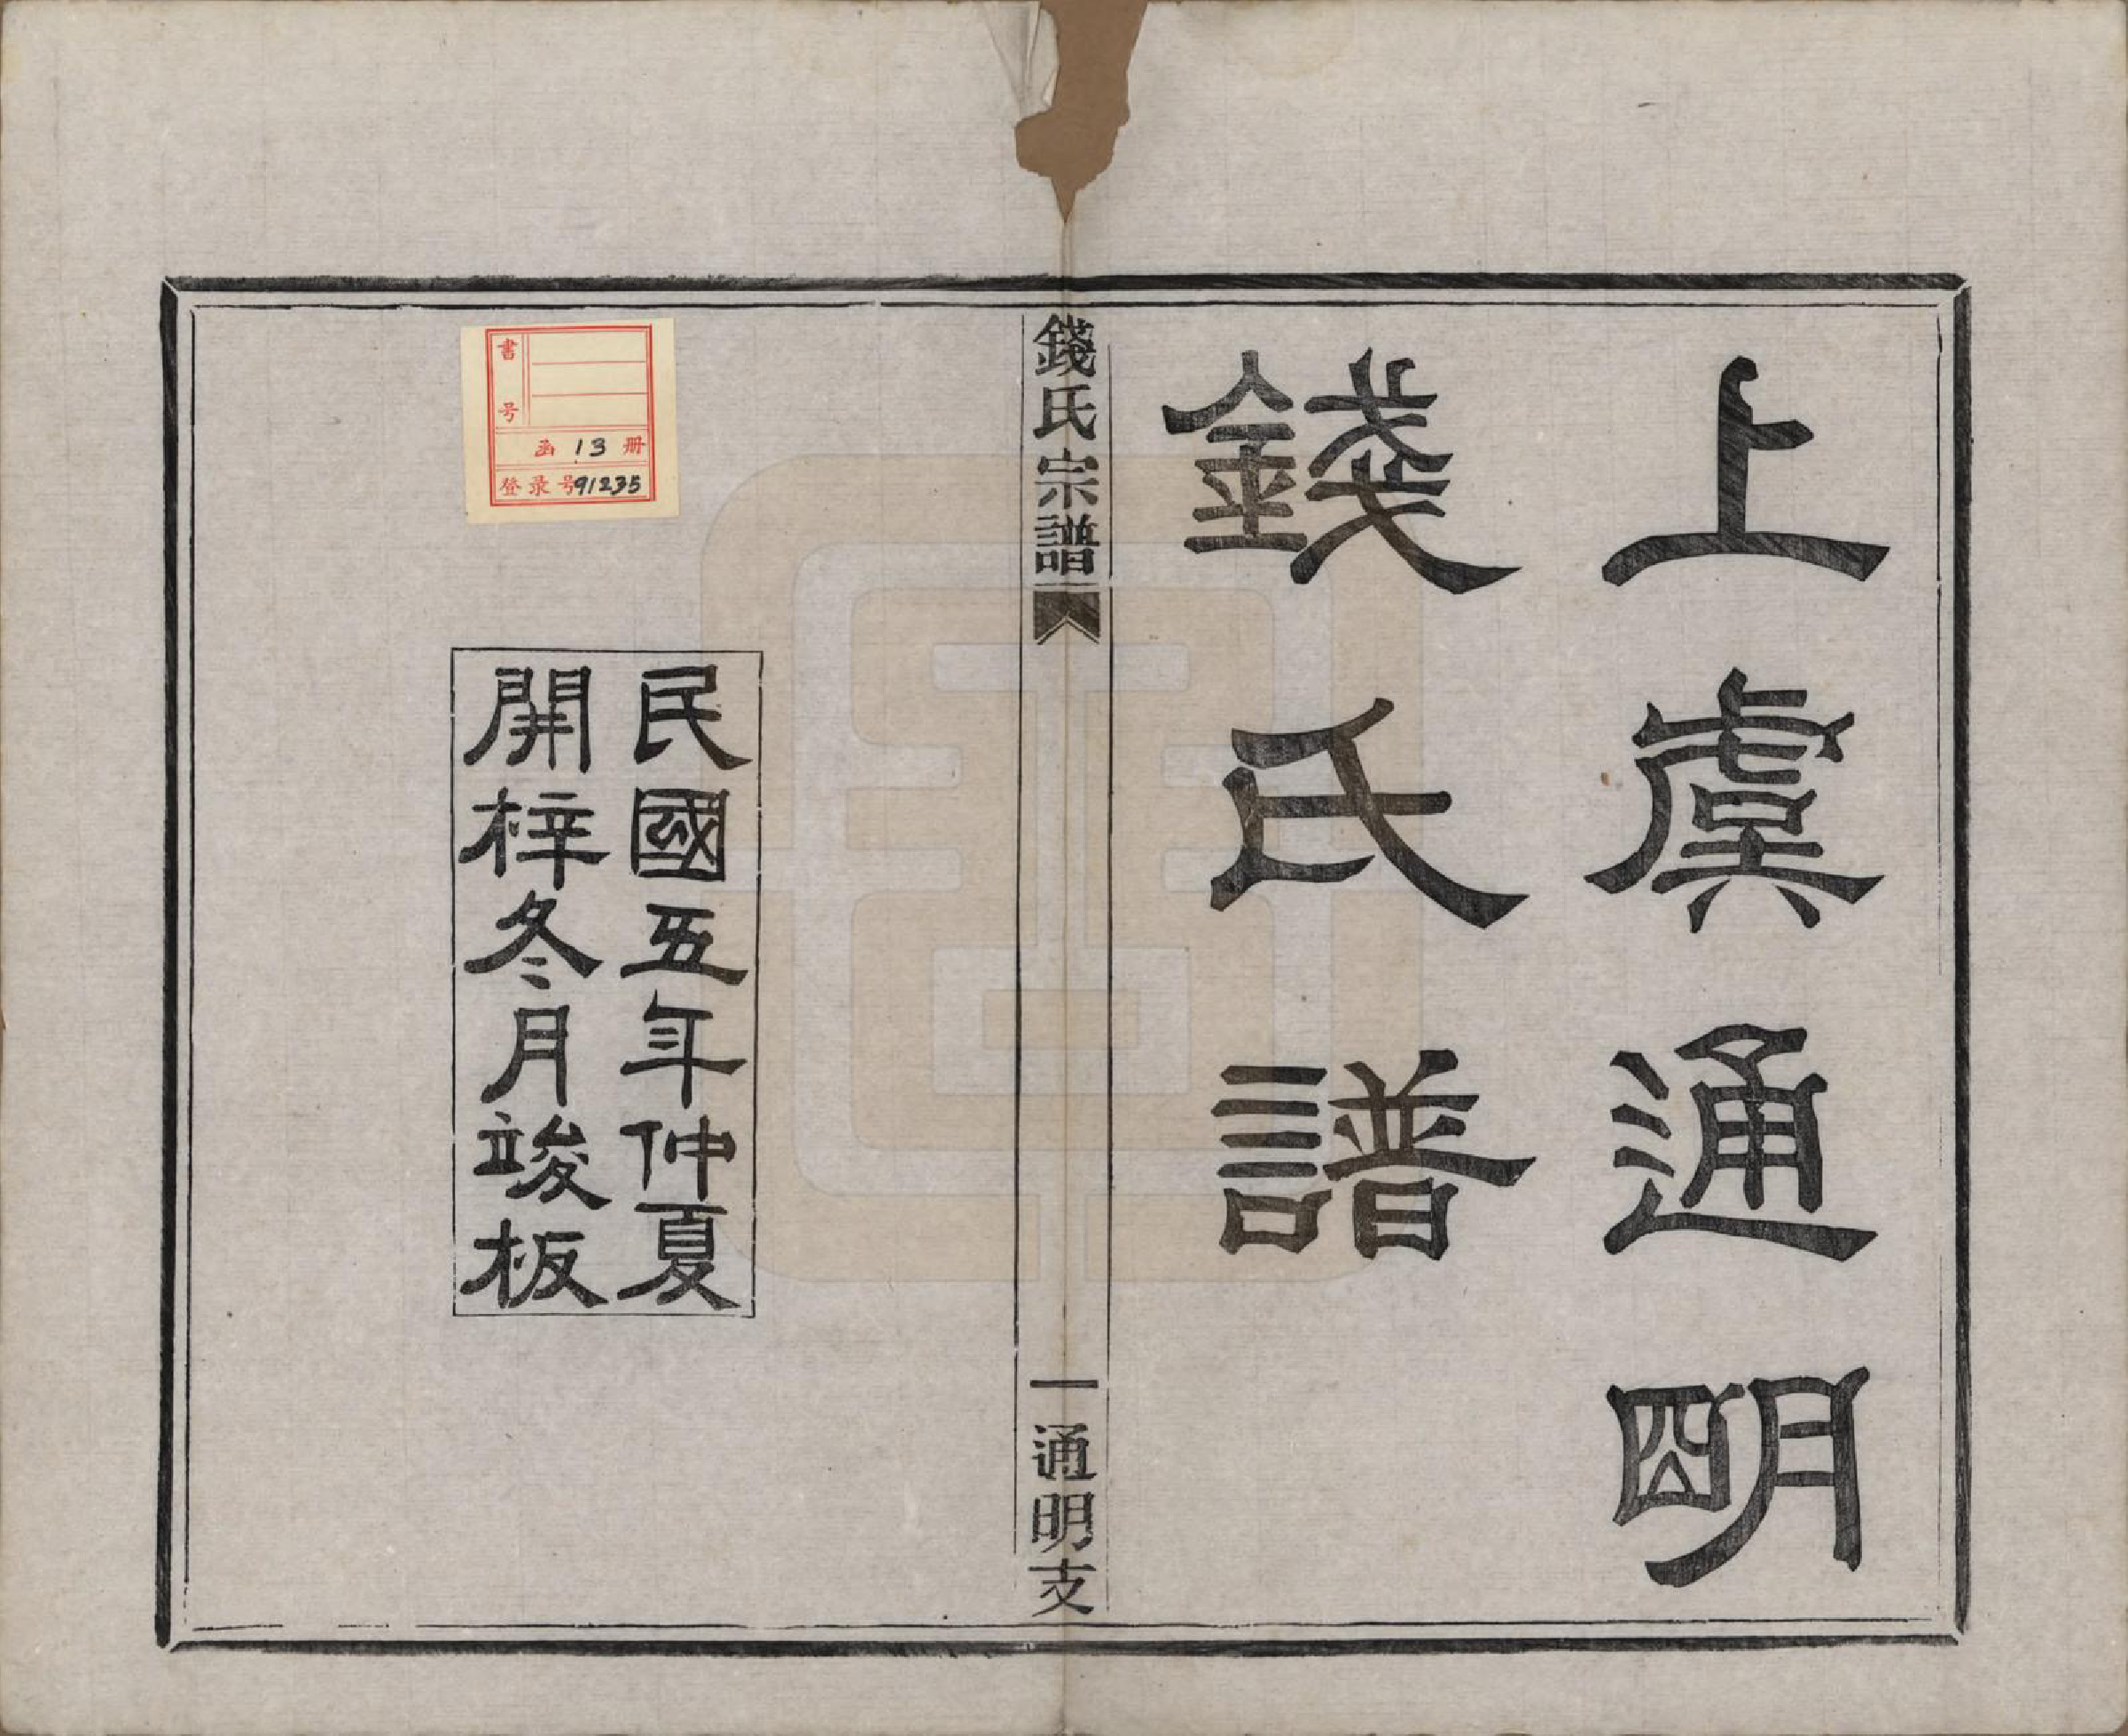 上虞通明
錢氏譜
錢氏宗譜
一
通明支
民國五年仲夏
開梓冬月竣板
書号
函 13 册
登录号91235